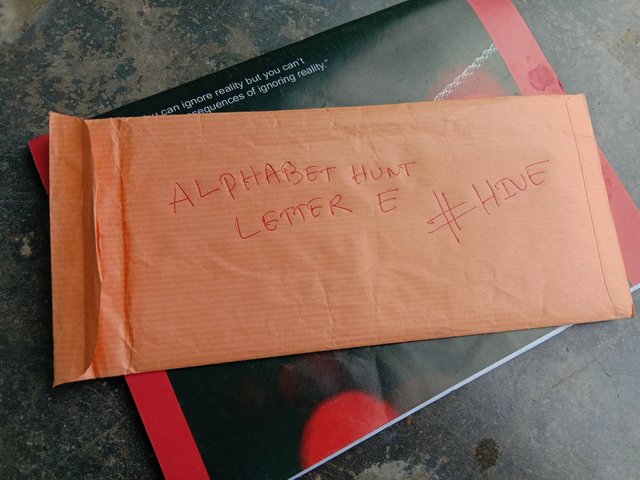 ou can ignore reality but you can't
sequences of ignoring reality."
ALPHABET HUNT
LETTER E #HIVE